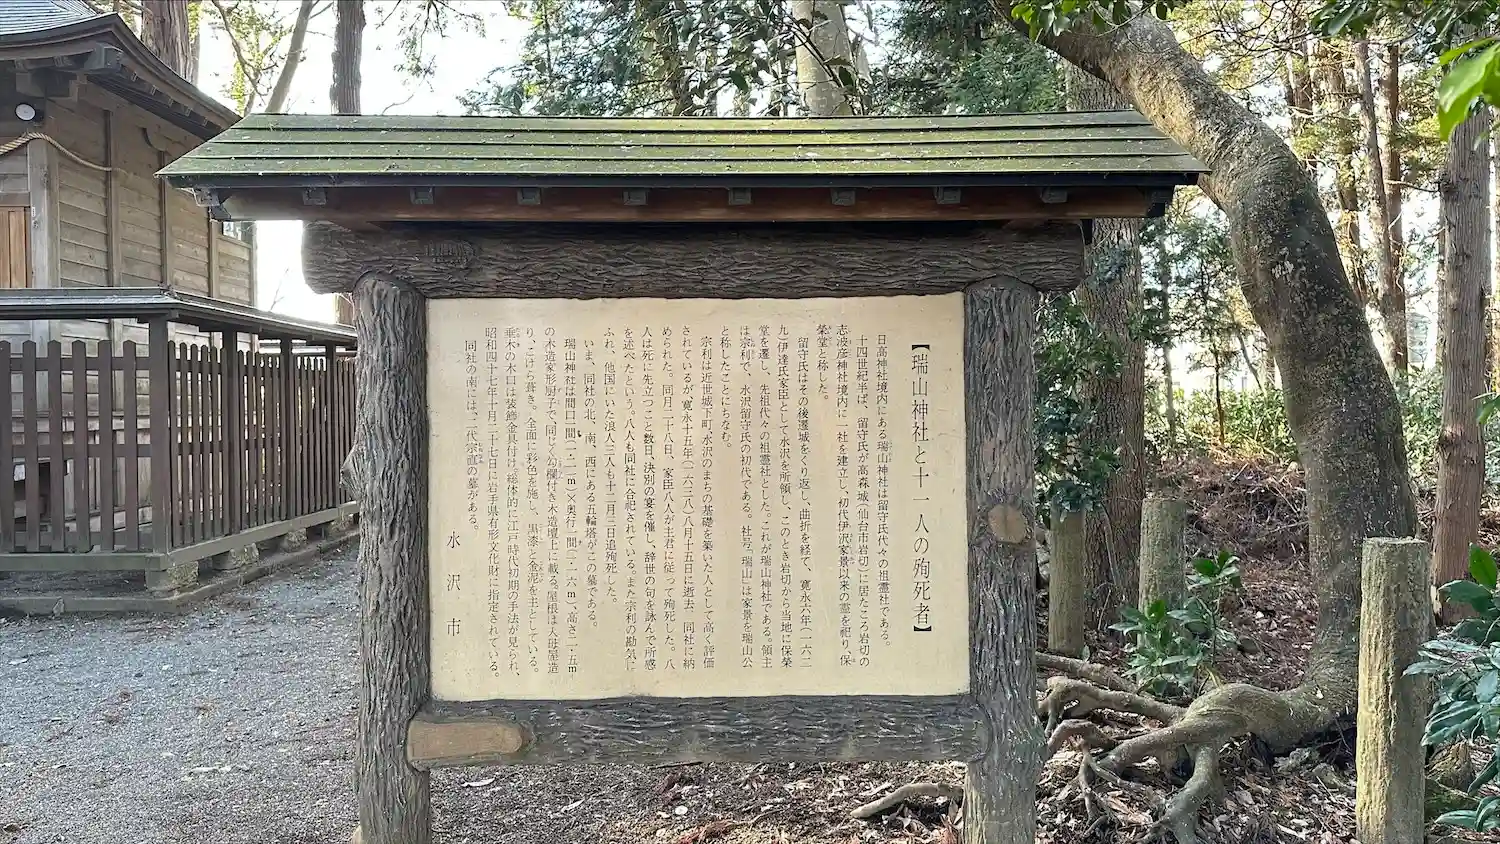 【瑞山神社と十一人の殉死者】
日高神社境内にある瑞山神社は留守氏代々の祖霊社である。
十四世紀半ば、留守氏が高森城(仙台市岩切)に居たころ岩切の
志波彦神社境内に一社を建立し、初代伊沢家景以来の霊を祀り、保
榮堂と称した。
留守氏はその後遷城をくり返し、曲折を経て、寛永六年(一六二
九)伊達氏家臣として水沢を所領し、このとき岩切から当地に保榮
堂を遷し、先祖代々の祖霊社とした。これが瑞山神社である。領主
は宗利で、水沢留守氏の初代である。社号「瑞山」は家景を瑞山公
と称したことにちなむ。
宗利は近世城下町、水沢のまちの基礎を築いた人として高く評価
されているが、寛永十五年(一六三八)八月十五日に逝去、同社に納
められた。同月二十八日、家臣八人が主君に従って殉死した。八
人は死に先立つこと数日、決別の宴を催し、辞世の句を詠んで所感
を述べたという。八人も同社に合祀されている。また宗利の勘気に
ふれ、他国にいた浪人三人も十二月三日追殉死した。
いま、同社の北、南、西にある五輪塔がこの墓である。
瑞山神社は間口一間(二・二m)×奥行一間(二・一六m)、高さ二・五m
の木造家形厨子で、同じく勾欄付き木造壇上に載る。屋根は入母屋造
り、こけら葺き。全面に彩色を施し、黒漆と金泥を主としている。
垂木の木口は装飾金具付け。総体的に江戸時代初期の手法が見られ、
昭和四十七年十月二十七日に岩手県有形文化財に指定されている。
同社の南には、二代宗直の墓がある。
水沢市